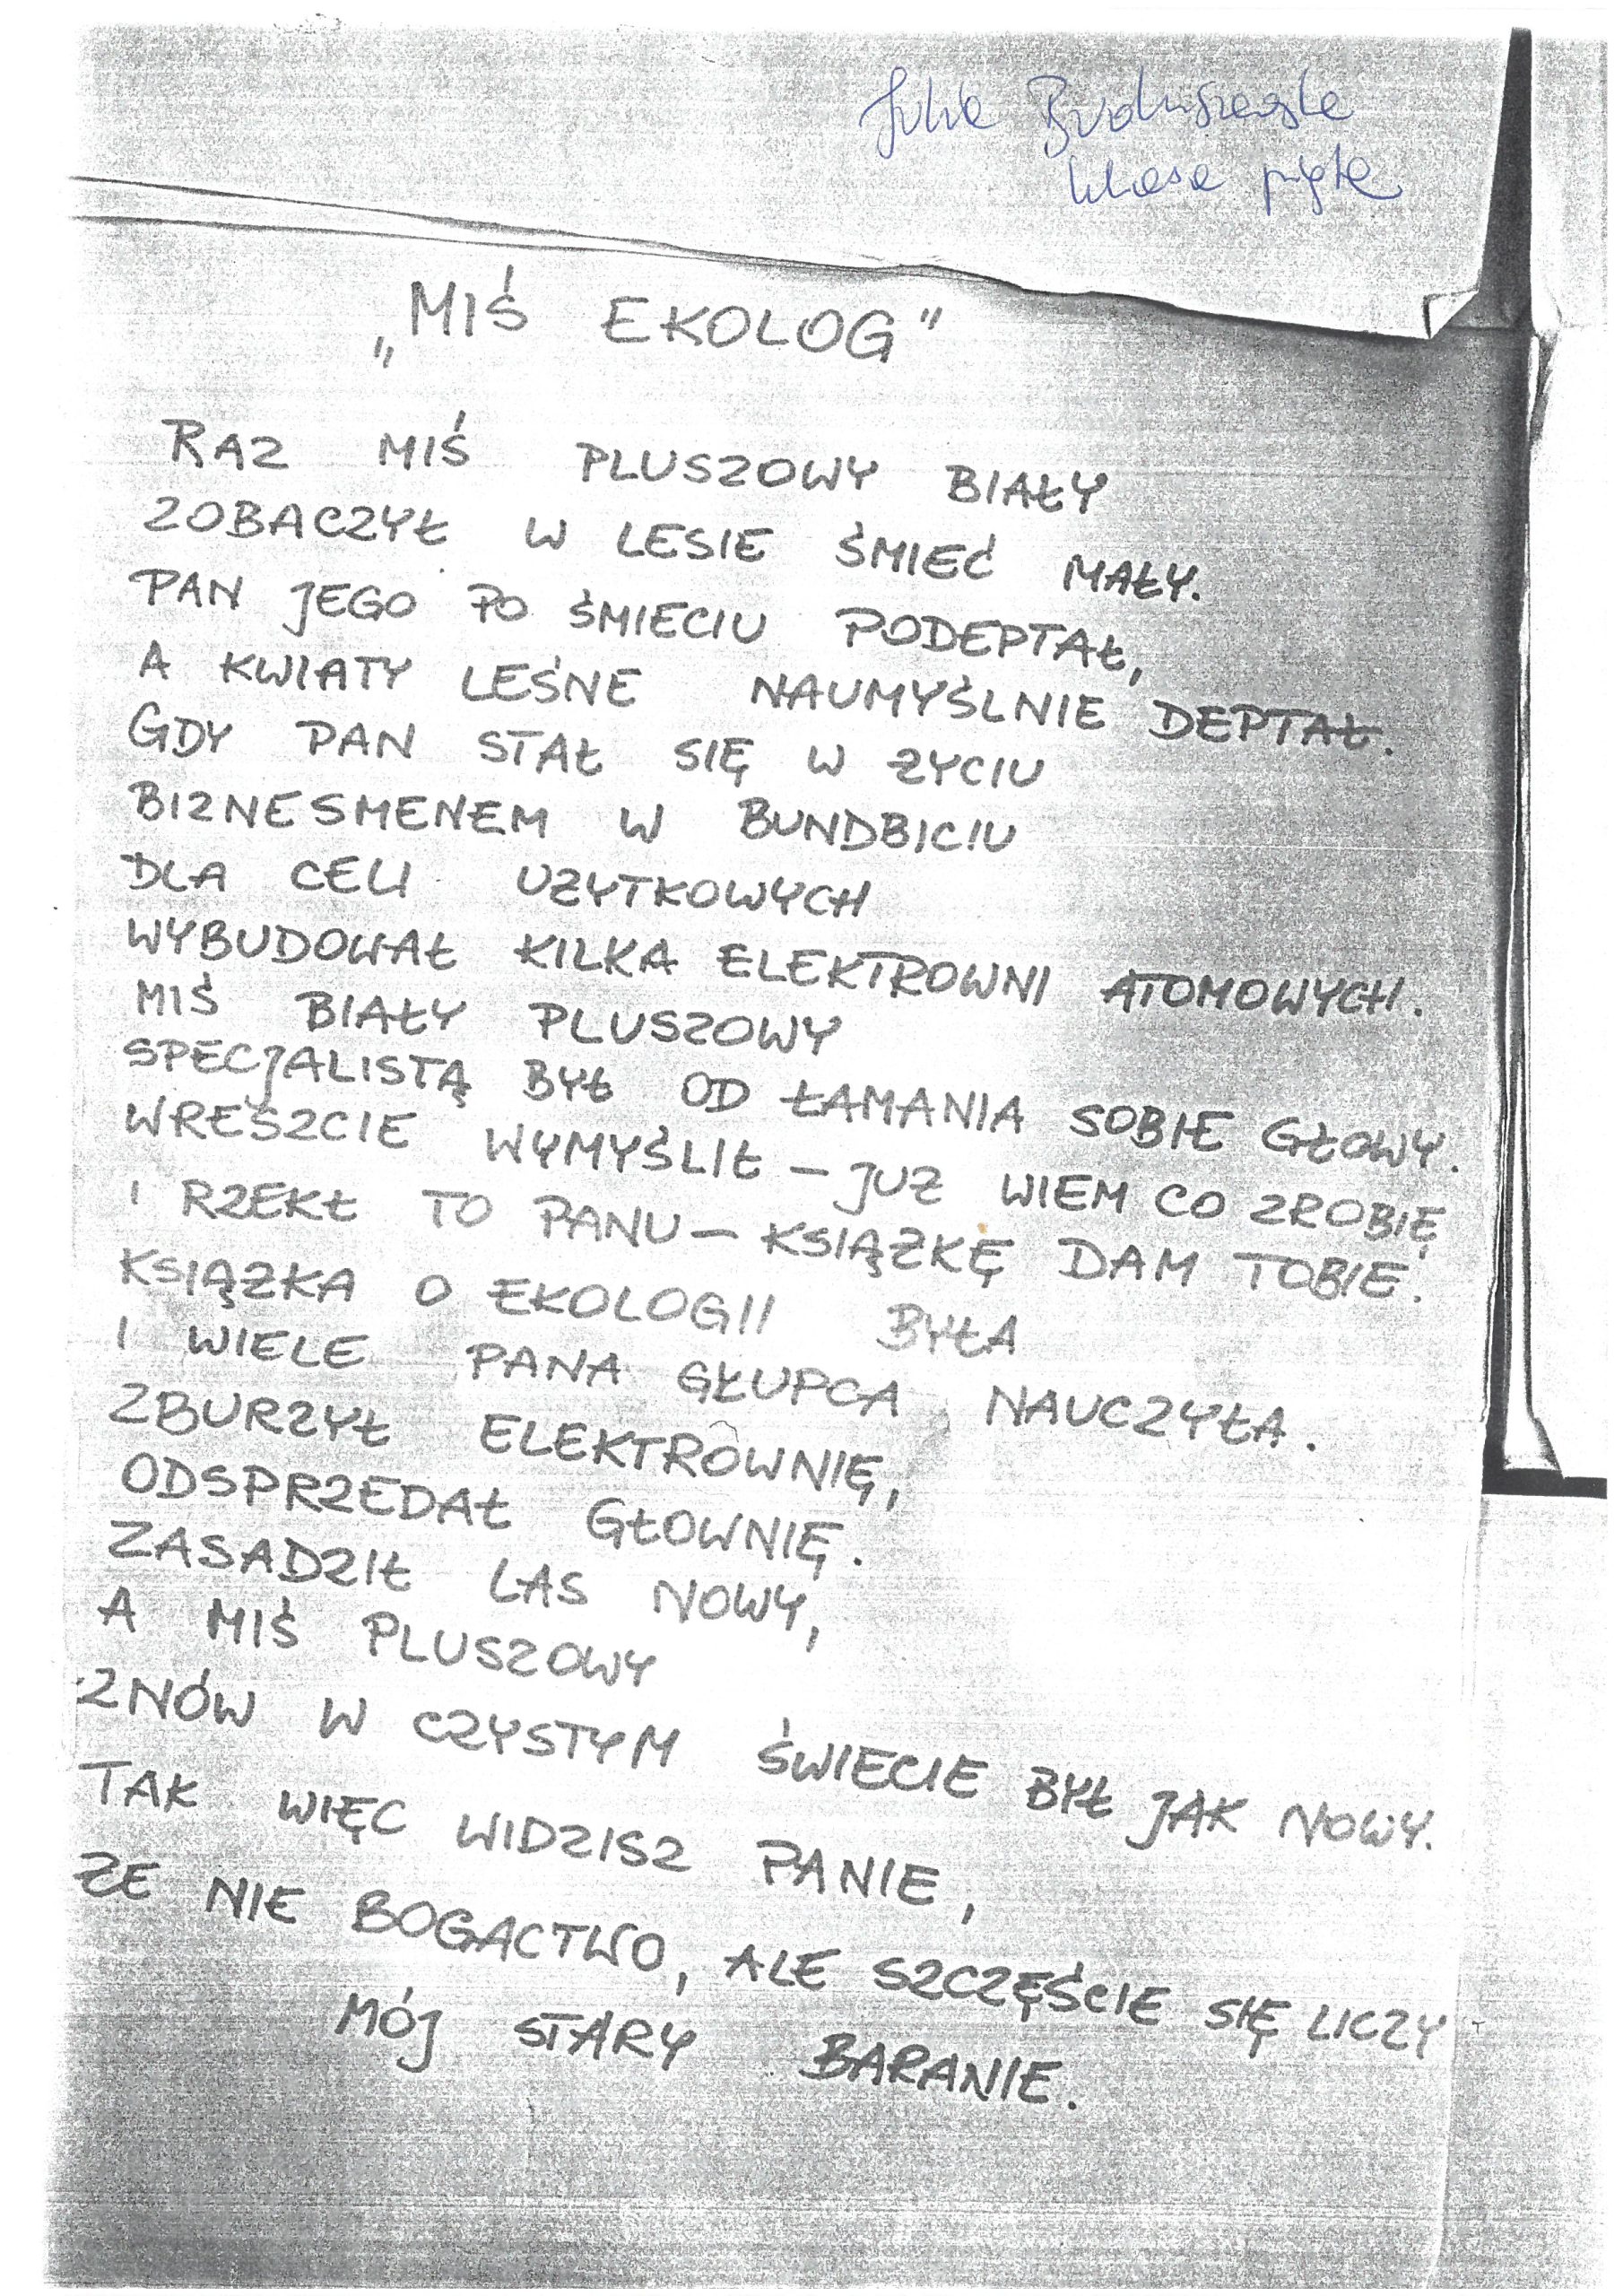 Julia
klasa piąta
„MIŚ EKOLOG"
RAZ MIŚ PLUSZOWY BIAŁY
ZOBACZYŁ W LESIE ŚMIEĆ MAŁY.
PAN JEGO PO ŚMIECIU PODEPTAŁ,
A KWIATY LEŚNE NAUMYŚLNIE DEPTAŁ.
GDY PAN STAŁ SIĘ W ŻYCIU
BIZNESMENEM W BUNDBICIU
DLA CELI UŻYTKOWYCH
WYBUDOWAŁ KILKA ELEKTROWNI ATOMOWYCH.
MIŚ BIAŁY PLUSZOWY
SPECJALISTĄ BYŁ OD ŁAMANIA SOBIE GŁOWY.
WRESZCIE WYMYŚLIŁ – JUŻ WIEM CO ZROBIĘ
I RZEKŁ TO PANU – KSIĄŻKĘ DAM TOBIE.
KSIĄŻKA O EKOLOGII BYŁA
I WIELE PANA GŁUPCA NAUCZYŁA.
ZBURZYŁ ELEKTROWNIĘ,
ODSPRZEDAŁ GŁOWNIĘ.
ZASADZIŁ LAS NOWY,
A MIŚ PLUSZOWY
ZNÓW W CZYSTYM ŚWIECIE BYŁ JAK NOWY.
TAK WIĘC WIDZISZ PANIE,
ŻE NIE BOGACTWO, ALE SZCZĘŚCIE SIĘ LICZY
MÓJ STARY BARANIE.